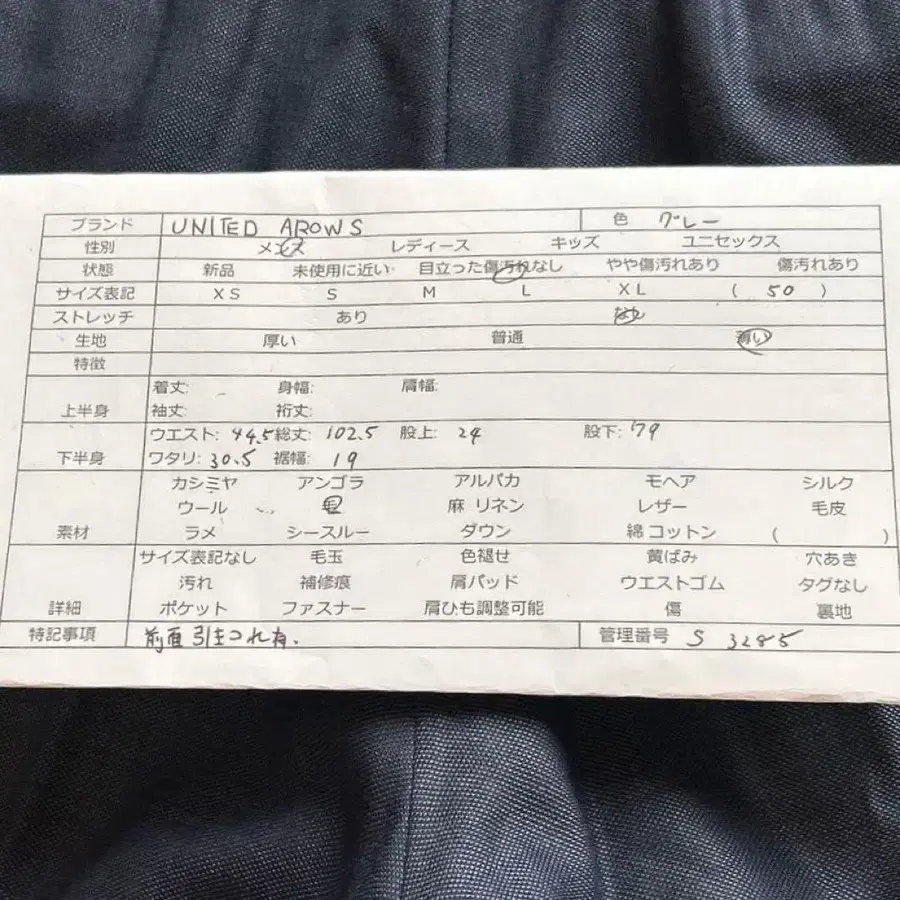 ブランド UNITED AROWS 色 グレー
性別 メンズ レディース キッズ ユニセックス
状態 新品 未使用に近い 目立った傷汚れなし やや傷汚れあり 傷汚れあり
サイズ表記 XS S M L XL ( 50 )
ストレッチ あり なし
生地 厚い 普通 薄い
特徴
着丈: 身幅: 肩幅:
上半身
袖丈: 裄丈:
ウエスト: 44.5 総丈: 102.5 股上: 24 股下: 79
下半身
ワタリ: 30.5 裾幅: 19
カシミヤ アンゴラ アルパカ モヘア シルク
ウール 毛 麻 リネン レザー 毛皮
素材 ラメ シースルー ダウン 綿 コットン ( )
サイズ表記なし 毛玉 色褪せ 黄ばみ 穴あき
汚れ 補修痕 肩パッド ウエストゴム タグなし
詳細 ポケット ファスナー 肩ひも調整可能 傷 裏地
特記事項 前面引きつれ有. 管理番号 S 3285